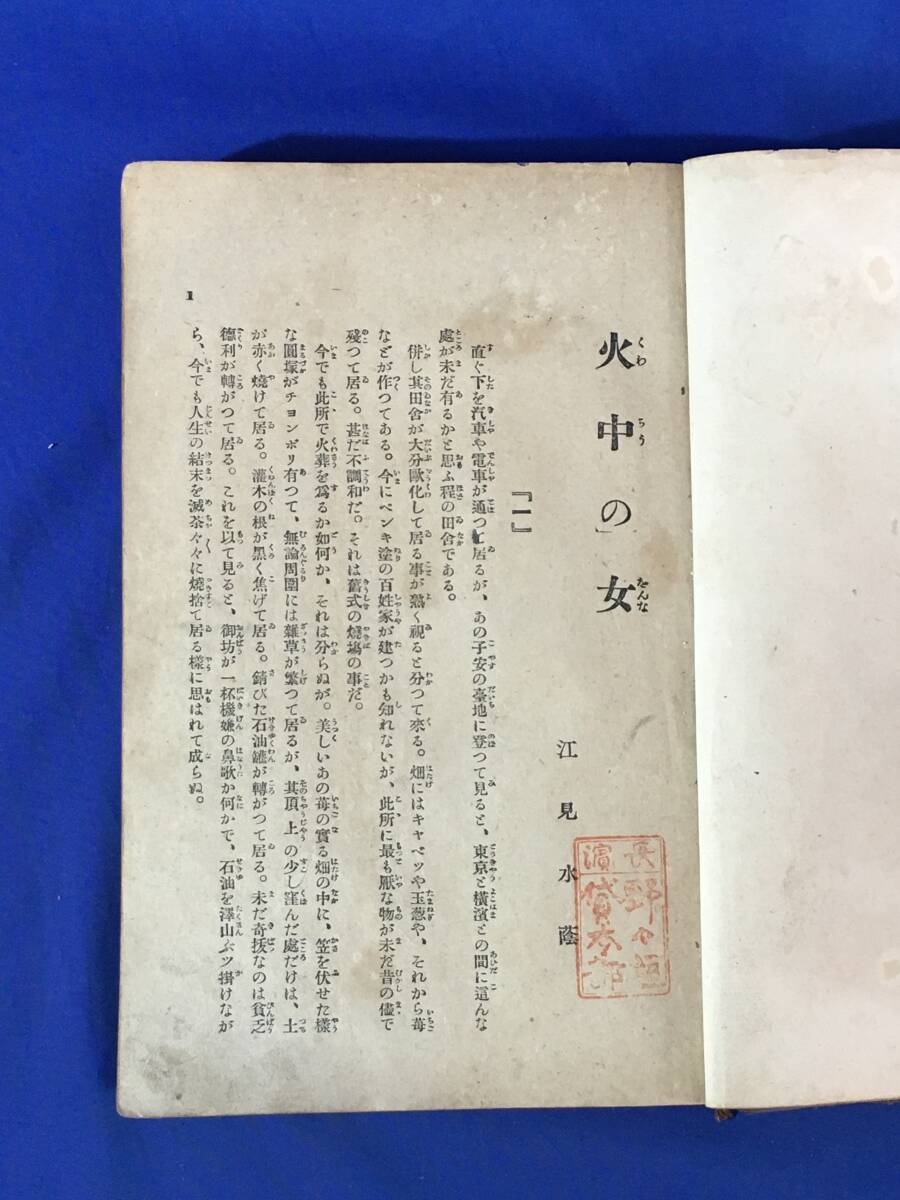 火中の女
江見水蔭
『一』
直ぐ下を汽車や電車が通つて居るが、あの子安の臺地に登つて見ると、東京と橫濱との間に這んな
處が未だ有るかと思ふ程の田舍である。
併し其田舍が大分歐化して居る事が熟く視ると分つて來る。畑にはキャベツや玉葱や、それから苺
などが作つてある。今にペンキ塗の百姓家が建つかも知れないが、此所に最も厭な物が未だ昔の儘で
殘つて居る。甚だ不調和だ。それは舊式の燒塲の事だ。
今でも此所で火葬を爲るか如何か、それは分らぬが。美しいあの苺の實る畑の中に、笠を伏せた樣
な圓塚がチヨンボリ有つて、無論周圍には雜草が繁つて居るが、其頂上の少し窪んだ處だけは、土
が赤く燒けて居る。灌木の根が黑く焦げて居る。錆びた石油罐が轉がつて居る。未だ奇拔なのは貧乏
德利が轉がつて居る。これを以て見ると、御坊が一杯機嫌の鼻歌か何かで、石油を澤山ぶツ掛けなが
ら、今でも人生の結末を滅茶々々に燒捨て居る樣に思はれて成らぬ。
1
長濱
貸本